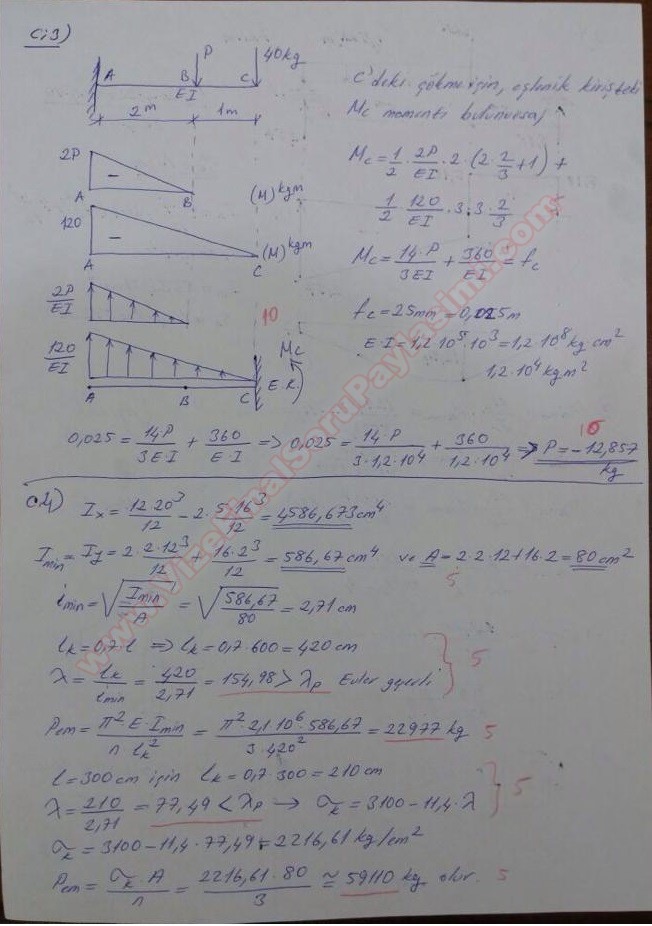 C:3)
P
40kg
A B C
EI
2m 1m
C'deki çökme için, eşlenik kirişteki
Mc momenti bulunursa;
2P
A - B (M) kgm
Mc = 1/2 · 2P/EI · 2 · (2 · 2/3 + 1) +
120
A - C (M) kgm
1/2 · 120/EI · 3 · 3 · 2/3
Mc = 14·P/3EI + 360/EI = fc
2P/EI
10
fc = 25mm = 0,025m
120/EI
Mc
A B C E.K.)
E·I = 1,2·10⁵·10³ = 1,2·10⁸ kg cm²
1,2·10⁴ kgm²
0,025 = 14·P/3E·I + 360/E·I => 0,025 = 14·P/3·1,2·10⁴ + 360/1,2·10⁴ => P = -12,857 kg
C:4)
Ix = 12·20³/12 - 2·5·16³/12 = 4586,673 cm⁴
Imin = Iy = 2·2·12³/12 + 16·2³/12 = 586,67 cm⁴ ve A = 2·2·12+16·2 = 80 cm²
5
imin = √(Imin/A) = √(586,67/80) = 2,71 cm
lk = 0,7·l => lk = 0,7·600 = 420 cm
λ = lk/imin = 420/2,71 = 154,98 > λp Euler geçerli
5
Pem = π² E·Imin/n lk² = π²·2,1·10⁶·586,67/3·420² = 22977 kg 5
l = 300 cm için lk = 0,7·300 = 210 cm
λ = 210/2,71 = 77,49 < λp → σk = 3100 - 11,4·λ
5
σk = 3100 - 11,4·77,49 = 2216,61 kg/cm²
Pem = σk·A/n = 2216,61·80/3 ≅ 59110 kg olur. 5
www.VizeFinalSoruPaylasimi.com